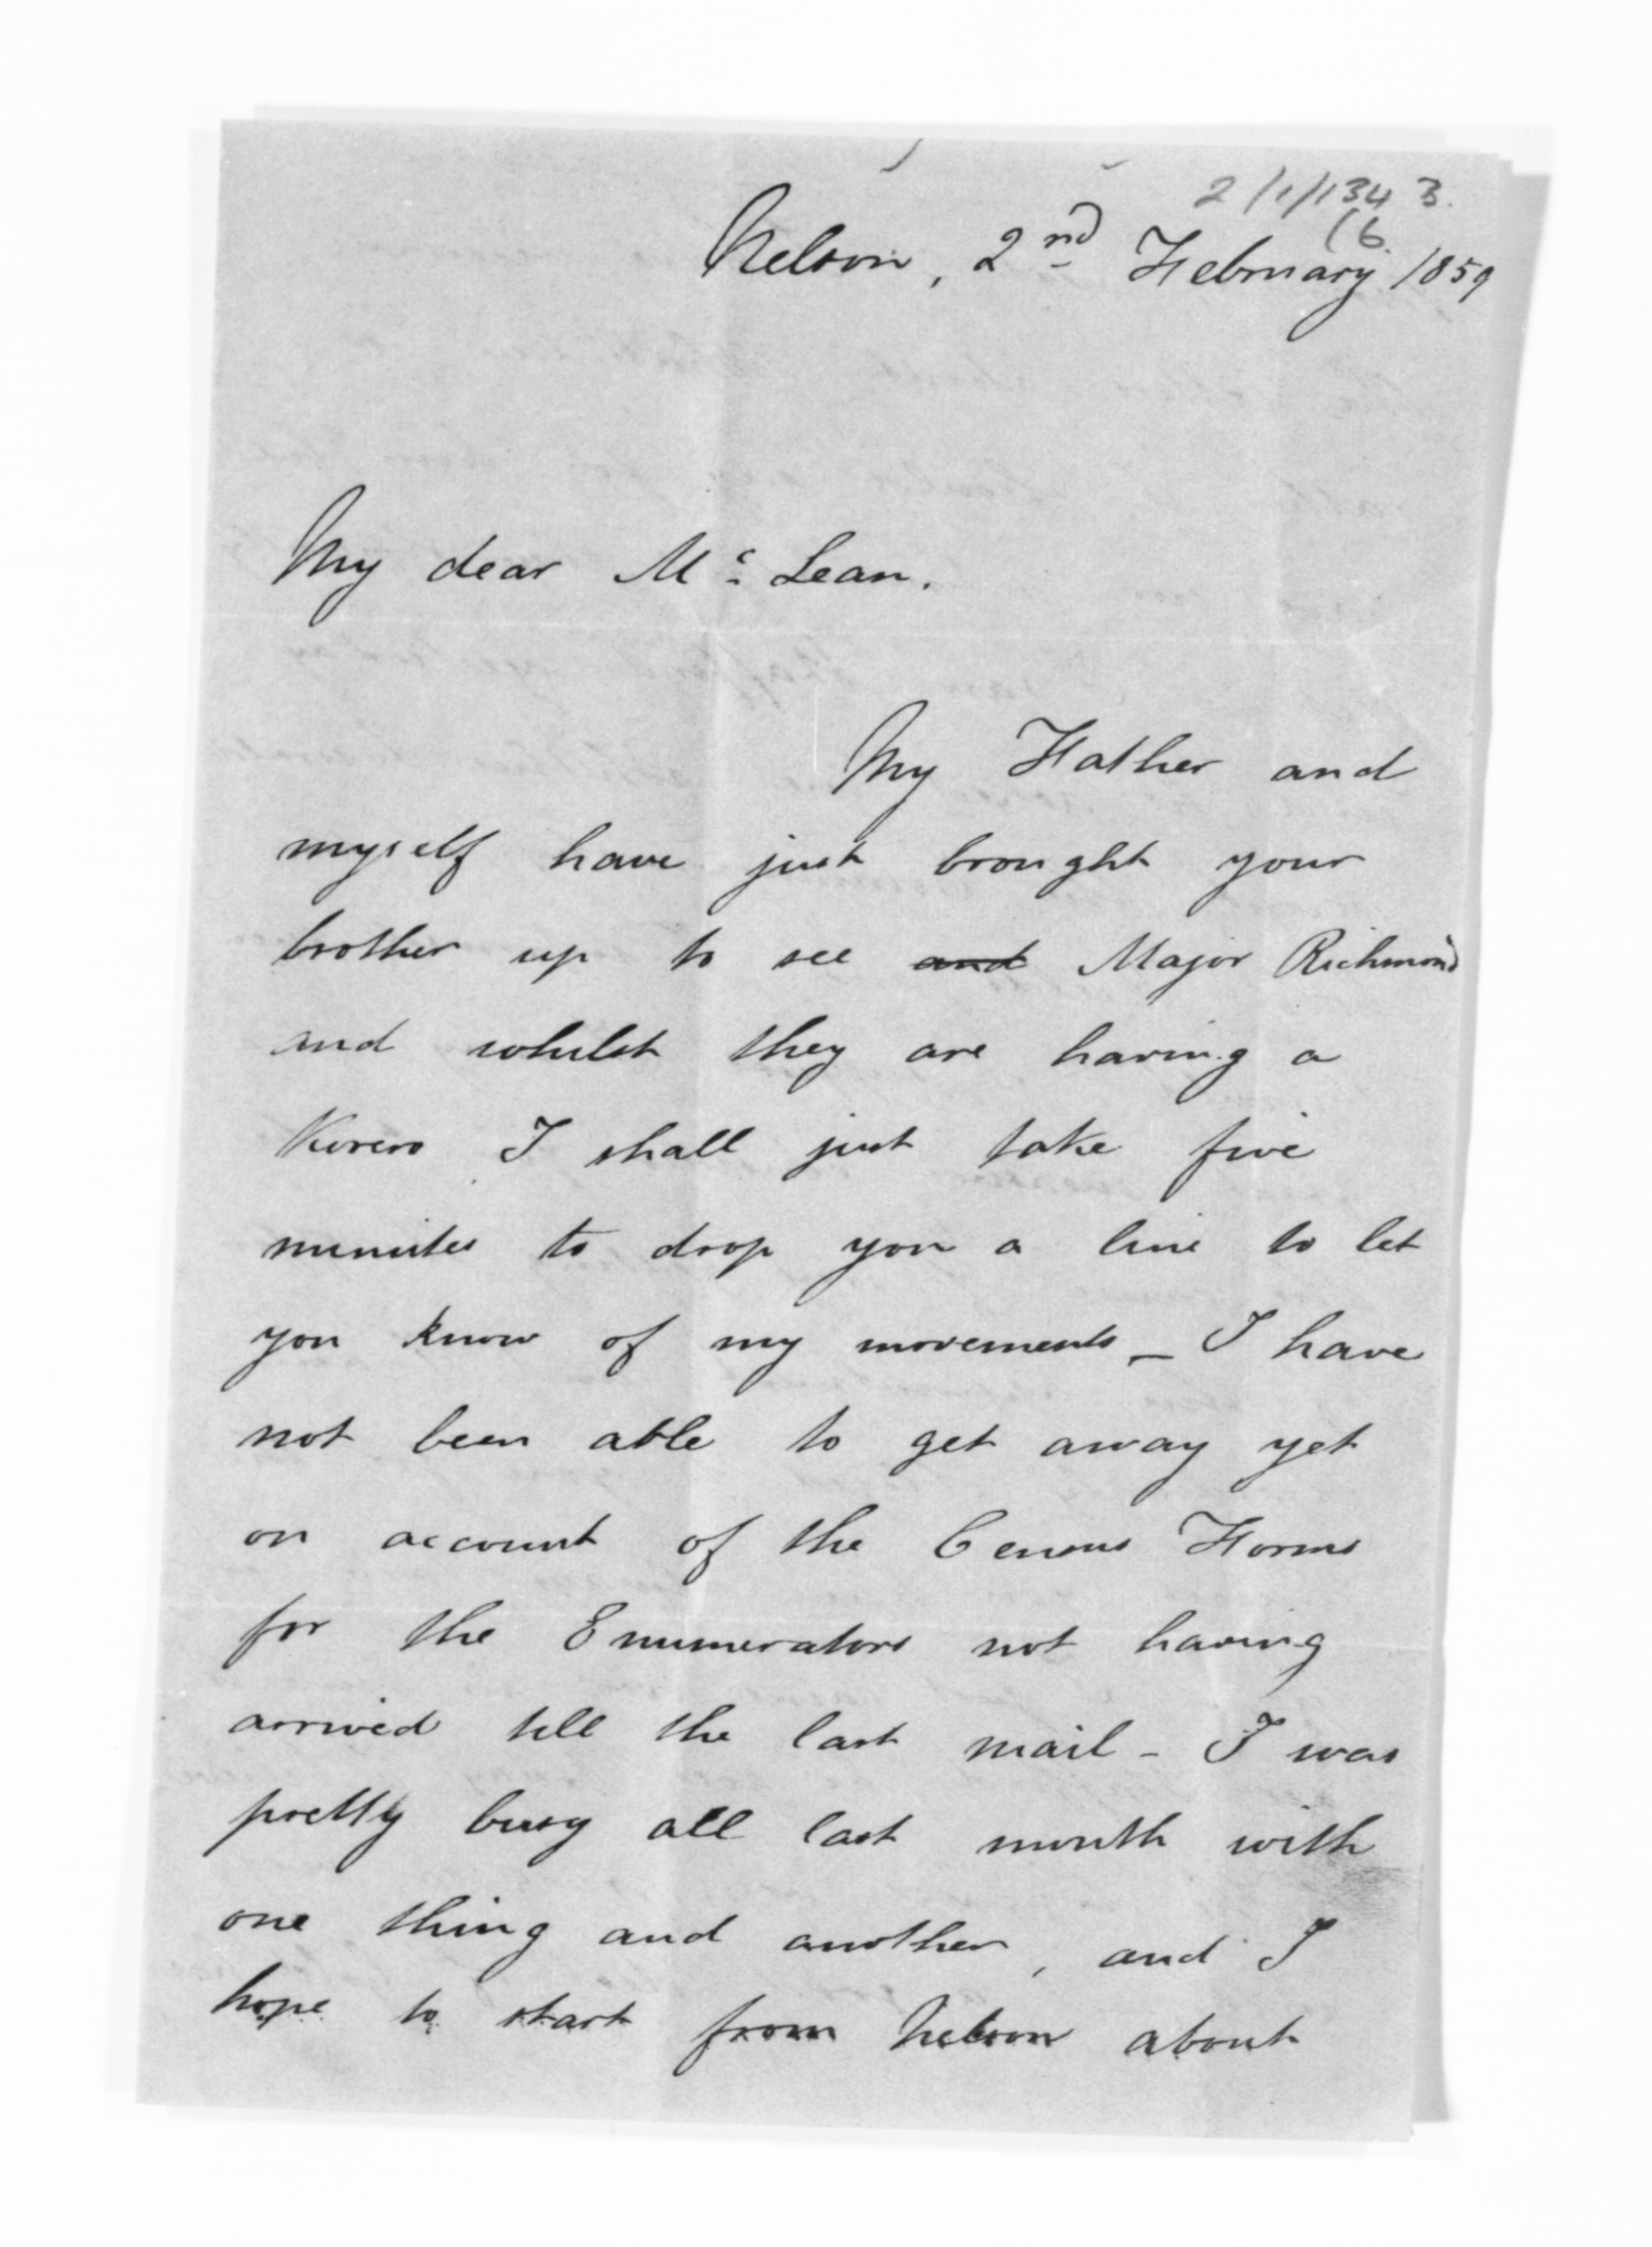 2/1/134 3.
(6.
Nelson, 2nd February 1859
My dear Mc Lean.
My Father and
myself have just brought your
brother up to see and Major Richmond
and whilst they are having a
Korero I shall just take five
minutes to drop you a line to let
you know of my movements_ I have
not been able to get away yet
on account of the Census Forms
for the Enumerators not having
arrived till the last mail - I was
pretty busy all last month with
one thing and another, and I
hope to start from Nelson about